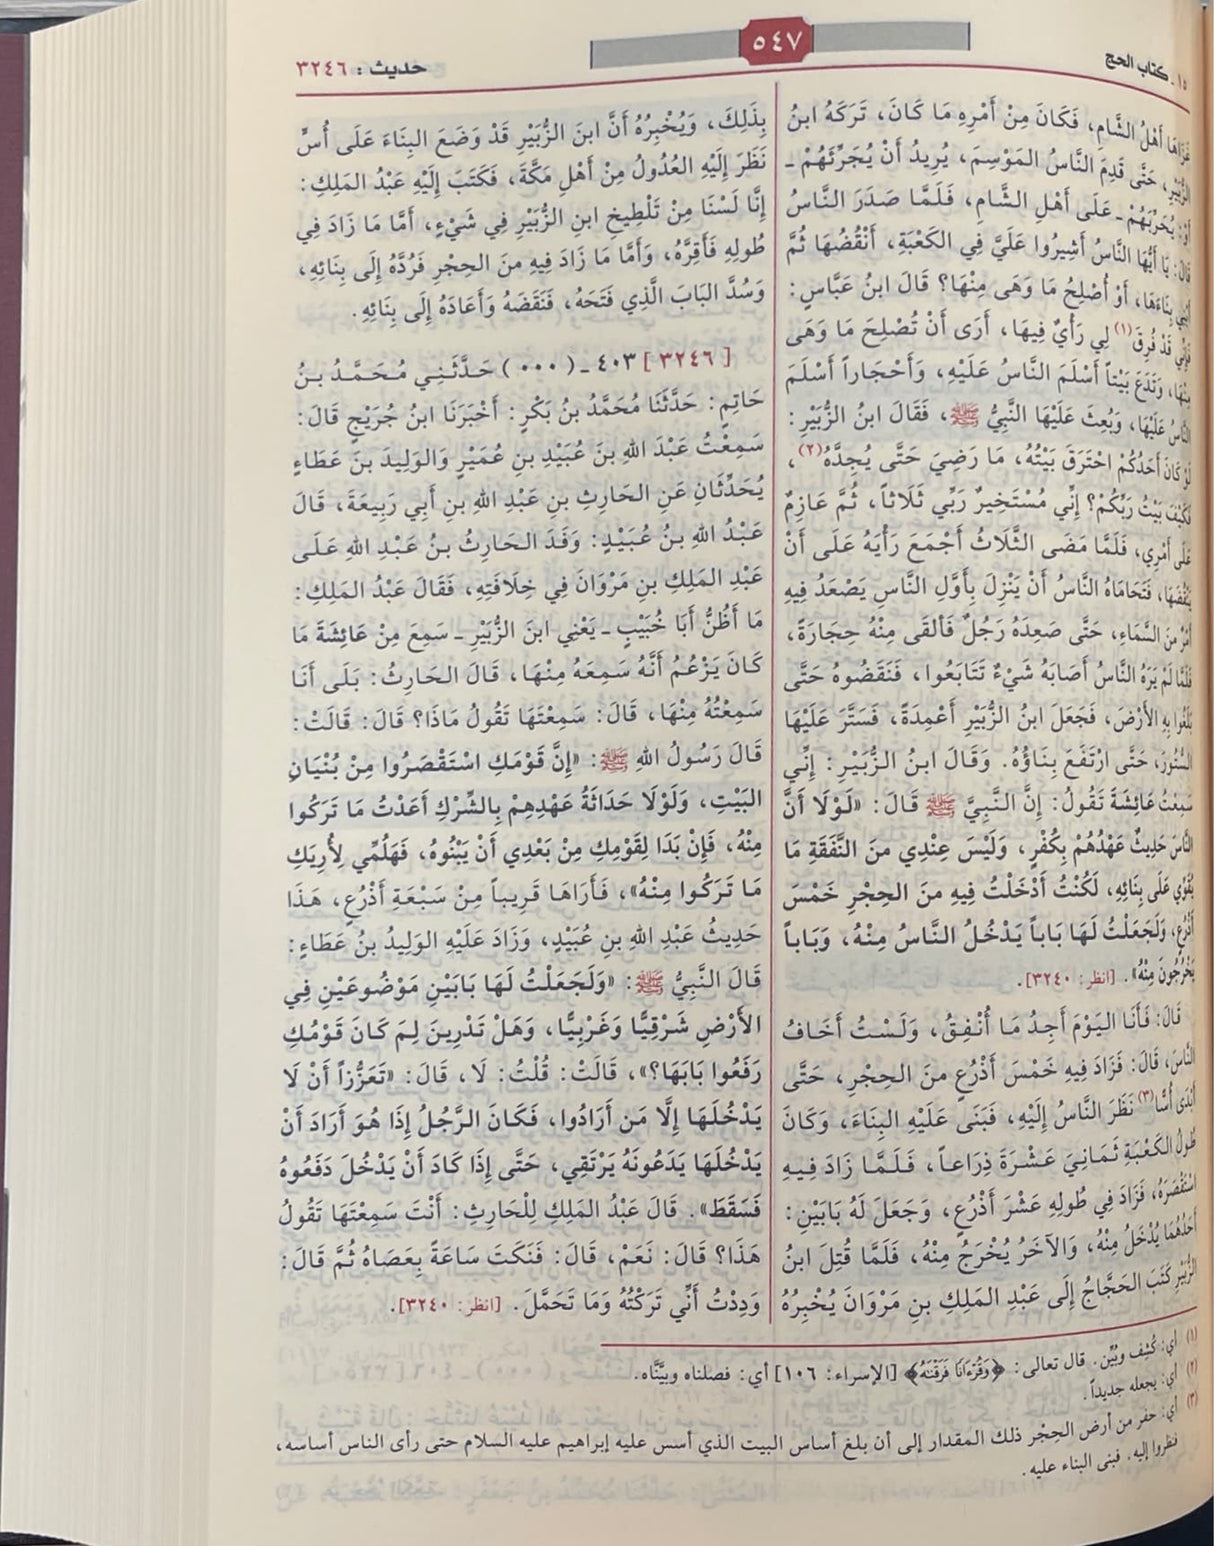 ١٥ ـ كتاب الحج
٥٤٧
حديث : ٣٢٤٦
غَزَاهَا أَهْلُ الشَّامِ، فَكَانَ مِنْ أَمْرِهِ مَا كَانَ، تَرَكَهُ ابنُ
الزُّبَيْرِ، حَتَّى قَدِمَ النَّاسُ المَوْسِمَ، يُرِيدُ أَنْ يُجَرِّئَهُمْ ـ
أَوْ: يُحَرِّبَهُمْ ـ عَلَى أَهْلِ الشَّامِ، فَلَمَّا صَدَرَ النَّاسُ
قَالَ: يَا أَيُّهَا النَّاسُ أَشِيرُوا عَلَيَّ فِي الكَعْبَةِ، أَنْقُضُهَا ثُمَّ
أَبْنِي بِنَاءَهَا، أَوْ أُصْلِحُ مَا وَهَى مِنْهَا؟ قَالَ ابنُ عَبَّاسٍ:
فَإِنِّي قَدْ فُرِقَ(١) لِي رَأْيٌ فِيهَا، أَرَى أَنْ تُصْلِحَ مَا وَهَى
مِنْهَا، وَتَدَعَ بَيْتاً أَسْلَمَ النَّاسُ عَلَيْهِ، وَأَحْجَاراً أَسْلَمَ
النَّاسُ عَلَيْهَا، وَبُعِثَ عَلَيْهَا النَّبِيُّ ﷺ، فَقَالَ ابنُ الزُّبَيْرِ:
لَوْ كَانَ أَحَدُكُمْ احْتَرَقَ بَيْتُهُ، مَا رَضِيَ حَتَّى يُجِدَّهُ(٢)،
فَكَيْفَ بَيْتُ رَبِّكُمْ؟ إِنِّي مُسْتَخِيرٌ رَبِّي ثَلَاثاً، ثُمَّ عَازِمٌ
عَلَى أَمْرِي، فَلَمَّا مَضَى الثَّلَاثُ أَجْمَعَ رَأْيَهُ عَلَى أَنْ
يَنْقُضَهَا، فَتَحَامَاهُ النَّاسُ أَنْ يَنْزِلَ بِأَوَّلِ النَّاسِ يَصْعَدُ فِيهِ
أَمْرٌ مِنَ السَّمَاءِ، حَتَّى صَعِدَهُ رَجُلٌ فَأَلقَى مِنْهُ حِجَارَةً،
فَلَمَّا لَمْ يَرَهُ النَّاسُ أَصَابَهُ شَيْءٌ تَتَابَعُوا، فَنَقَضُوهُ حَتَّى
بَلَغُوا بِهِ الأَرْضَ، فَجَعَلَ ابنُ الزُّبَيْرِ أَعْمِدَةً، فَسَتَّرَ عَلَيْهَا
السُّتُورَ، حَتَّى ارْتَفَعَ بِنَاؤُهُ. وَقَالَ ابنُ الزُّبَيْرِ: إِنِّي
سَمِعْتُ عَائِشَةَ تَقُولُ: إِنَّ النَّبِيَّ ﷺ قَالَ: «لَوْلَا أَنَّ
النَّاسَ حَدِيثٌ عَهْدُهُمْ بِكُفْرٍ، وَلَيْسَ عِنْدِي منَ النَّفَقَةِ مَا
يُقَوِّي عَلَى بِنَائِهِ، لَكُنْتُ أَدْخَلْتُ فِيهِ منَ الحِجْرِ خَمْسَ
أَذْرُعٍ، وَلَجَعَلْتُ لَهَا بَاباً يَدْخُلُ النَّاسُ مِنْهُ، وَبَاباً
يَخْرُجُونَ مِنْهُ». [انظر: ٣٢٤٠].
قَالَ: فَأَنَا اليَوْمَ أَجِدُ مَا أُنْفِقُ، وَلَسْتُ أَخَافُ
النَّاسَ، قَالَ: فَزَادَ فِيهِ خَمْسَ أَذْرُعٍ منَ الحِجْرِ، حَتَّى
أَبْدَى أُسًّا(٣) نَظَرَ النَّاسُ إِلَيْهِ، فَبَنَى عَلَيْهِ البِنَاءَ، وَكَانَ
طُولُ الكَعْبَةِ ثَمَانِيَ عَشْرَةَ ذِرَاعاً، فَلَمَّا زَادَ فِيهِ
اسْتَقْصَرَهُ، فَزَادَ فِي طُولِهِ عَشْرَ أَذْرُعٍ، وَجَعَلَ لَهُ بَابَيْنِ:
أَحَدُهُمَا يُدْخَلُ مِنْهُ، وَالآخَرُ يُخْرَجُ مِنْهُ، فَلَمَّا قُتِلَ ابنُ
الزُّبَيْرِ كَتَبَ الحَجَّاجُ إِلَى عَبْدِ المَلِكِ بنِ مَرْوَانَ يُخْبِرُهُ
بِذَلِكَ، وَيُخْبِرُهُ أَنَّ ابنَ الزُّبَيْرِ قَدْ وَضَعَ البِنَاءَ عَلَى أُسٍّ
نَظَرَ إِلَيْهِ العُدُولُ مِنْ أَهْلِ مَكَّةَ، فَكَتَبَ إِلَيْهِ عَبْدُ المَلِكِ:
إِنَّا لَسْنَا مِنْ تَلْطِيخِ ابنِ الزُّبَيْرِ فِي شَيْءٍ، أَمَّا مَا زَادَ فِي
طُولِهِ فَأَقِرَّهُ، وَأَمَّا مَا زَادَ فِيهِ منَ الحِجْرِ فَرُدَّهُ إِلَى بِنَائِهِ،
وَسُدَّ البَابَ الَّذِي فَتَحَهُ، فَنَقَضَهُ وَأَعَادَهُ إِلَى بِنَائِهِ.
[ ٣٢٤٦ ] ٤٠٣ ـ ( ٠٠٠ ) حَدَّثَنِي مُحَمَّدُ بنُ
حَاتِمٍ: حَدَّثَنَا مُحَمَّدُ بنُ بَكْرٍ: أَخْبَرَنَا ابنُ جُرَيْجٍ قَالَ:
سَمِعْتُ عَبْدَ اللهِ بنَ عُبَيْدِ بنِ عُمَيْرٍ وَالوَلِيدَ بنَ عَطَاءٍ
يُحَدِّثَانِ عَنِ الحَارِثِ بنِ عَبْدِ اللهِ بنِ أَبِي رَبِيعَةَ، قَالَ
عَبْدُ اللهِ بنُ عُبَيْدٍ: وَفَدَ الحَارِثُ بنُ عَبْدِ اللهِ عَلَى
عَبْدِ المَلِكِ بنِ مَرْوَانَ فِي خِلَافَتِهِ، فَقَالَ عَبْدُ المَلِكِ:
مَا أَظُنُّ أَبَا خُبَيْبٍ ـ يَعْنِي ابنَ الزُّبَيْرِ ـ سَمِعَ مِنْ عَائِشَةَ مَا
كَانَ يَزْعُمُ أَنَّهُ سَمِعَهُ مِنْهَا، قَالَ الحَارِثُ: بَلَى أَنَا
سَمِعْتُهُ مِنْهَا، قَالَ: سَمِعْتَهَا تَقُولُ مَاذَا؟ قَالَ: قَالَتْ:
قَالَ رَسُولُ اللهِ ﷺ: «إِنَّ قَوْمَكِ اسْتَقْصَرُوا مِنْ بُنْيَانِ
البَيْتِ، وَلَوْلَا حَدَاثَةُ عَهْدِهِمْ بِالشِّرْكِ أَعَدْتُ مَا تَرَكُوا
مِنْهُ، فَإِنْ بَدَا لِقَوْمِكِ مِنْ بَعْدِي أَنْ يَبْنُوهُ، فَهَلُمِّي لِأُرِيَكِ
مَا تَرَكُوا مِنْهُ»، فَأَرَاهَا قَرِيباً مِنْ سَبْعَةِ أَذْرُعٍ، هَذَا
حَدِيثُ عَبْدِ اللهِ بنِ عُبَيْدٍ، وَزَادَ عَلَيْهِ الوَلِيدُ بنُ عَطَاءٍ:
قَالَ النَّبِيُّ ﷺ: «وَلَجَعَلْتُ لَهَا بَابَيْنِ مَوْضُوعَيْنِ فِي
الأَرْضِ شَرْقِيًّا وَغَرْبِيًّا، وَهَلْ تَدْرِينَ لِمَ كَانَ قَوْمُكِ
رَفَعُوا بَابَهَا؟»، قَالَتْ: قُلْتُ: لَا، قَالَ: «تَعَزُّزاً أَنْ لَا
يَدْخُلَهَا إِلَّا مَن أَرَادُوا، فَكَانَ الرَّجُلُ إِذَا هُوَ أَرَادَ أَنْ
يَدْخُلَهَا يَدَعُونَهُ يَرْتَقِي، حَتَّى إِذَا كَادَ أَنْ يَدْخُلَ دَفَعُوهُ
فَسَقَطَ». قَالَ عَبْدُ المَلِكِ لِلْحَارِثِ: أَنْتَ سَمِعْتَهَا تَقُولُ
هَذَا؟ قَالَ: نَعَمْ، قَالَ: فَنَكَتَ سَاعَةً بِعَصَاهُ ثُمَّ قَالَ:
وَدِدْتُ أَنِّي تَرَكْتُهُ وَمَا تَحَمَّلَ. [انظر: ٣٢٤٠].
(١) أي: كُشِف وبُيِّن. قال تعالى: ﴿وَقُرْءَانًا فَرَقْنَٰهُ﴾ [الإسراء: ١٠٦] أي: فصلناه وبيَّنَّاه.
(٢) أي: يجعله جديداً.
(٣) أي: حفر من أرض الحِجْر ذلك المقدار إلى أن بلغ أساس البيت الذي أسس عليه إبراهيم عليه السلام حتى رأى الناس أساسه،
فنظروا إليه. فبنى البناء عليه.